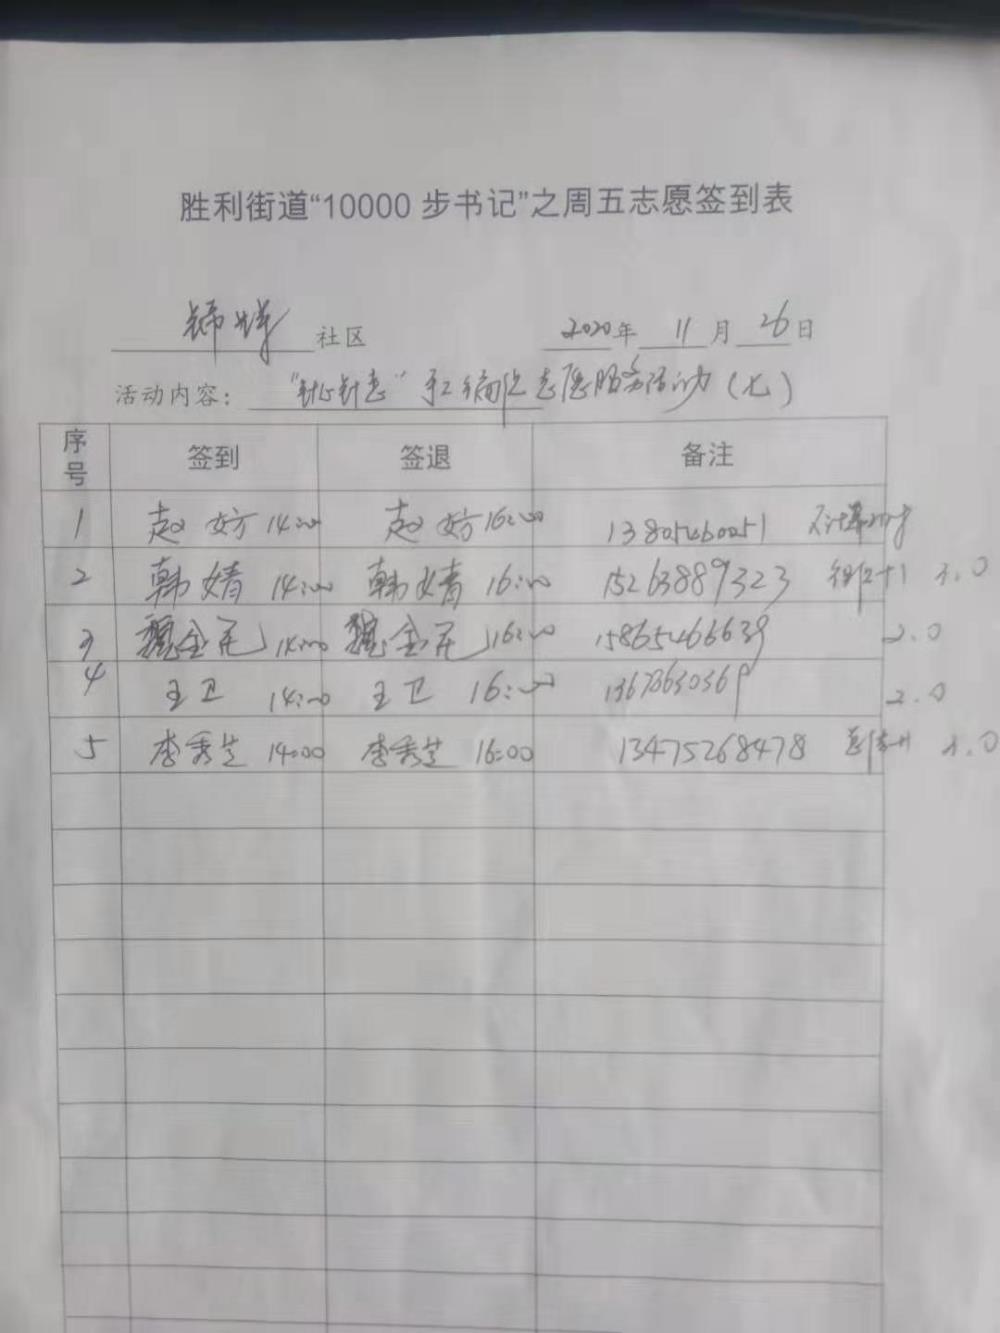 胜利街道“10000步书记”之周五志愿签到表
锦苑 社区 2020年 11月 26日
活动内容： “ ”手工编织志愿服务活动（七）
序号 签到 签退 备注
1 赵 14:00 赵 16:00 13805460051 不计时
2 韩婧 14:00 韩婧 16:00 15263889323 +1 3.0
3 魏金 14:00 魏金 16:00 15865466639 2.0
4 王卫 14:00 王卫 16:00 2.0
5 李秀芝 14:00 李秀芝 16:00 13475268478